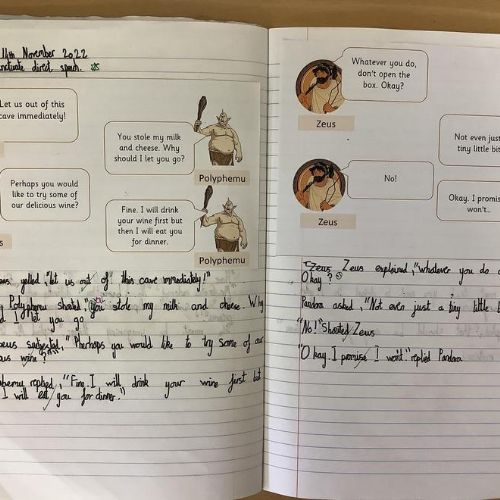 14th November 2022
direct speech.
Let us out of this
cave immediately!
You stole my milk
and cheese. Why
should I let you go?
Polyphemu
Perhaps you would
like to try some of
our delicious wine?
Fine. I will drink
your wine first but
then I will eat you
for dinner.
Polyphemu
yelled "let us out of this cave immediately!"
Polyphemu shouted "you stole my milk and cheese. Why
I let you go
suggested "Pherhaps you would like to try some of our
wine?"
replied, "Fine. I will drink your wine first but
I will eat you for dinner."
Whatever you do,
don't open the
box. Okay?
Zeus
Not even just
tiny little bit
No!
Zeus
Okay. I promis
won't..
"Zeus Zeus explained, "whatever you do
Okay?
Pandora asked, "Not even just a tiny little
"No!" Shouted Zeus
"Okay. I promise I won't." replied Pandora